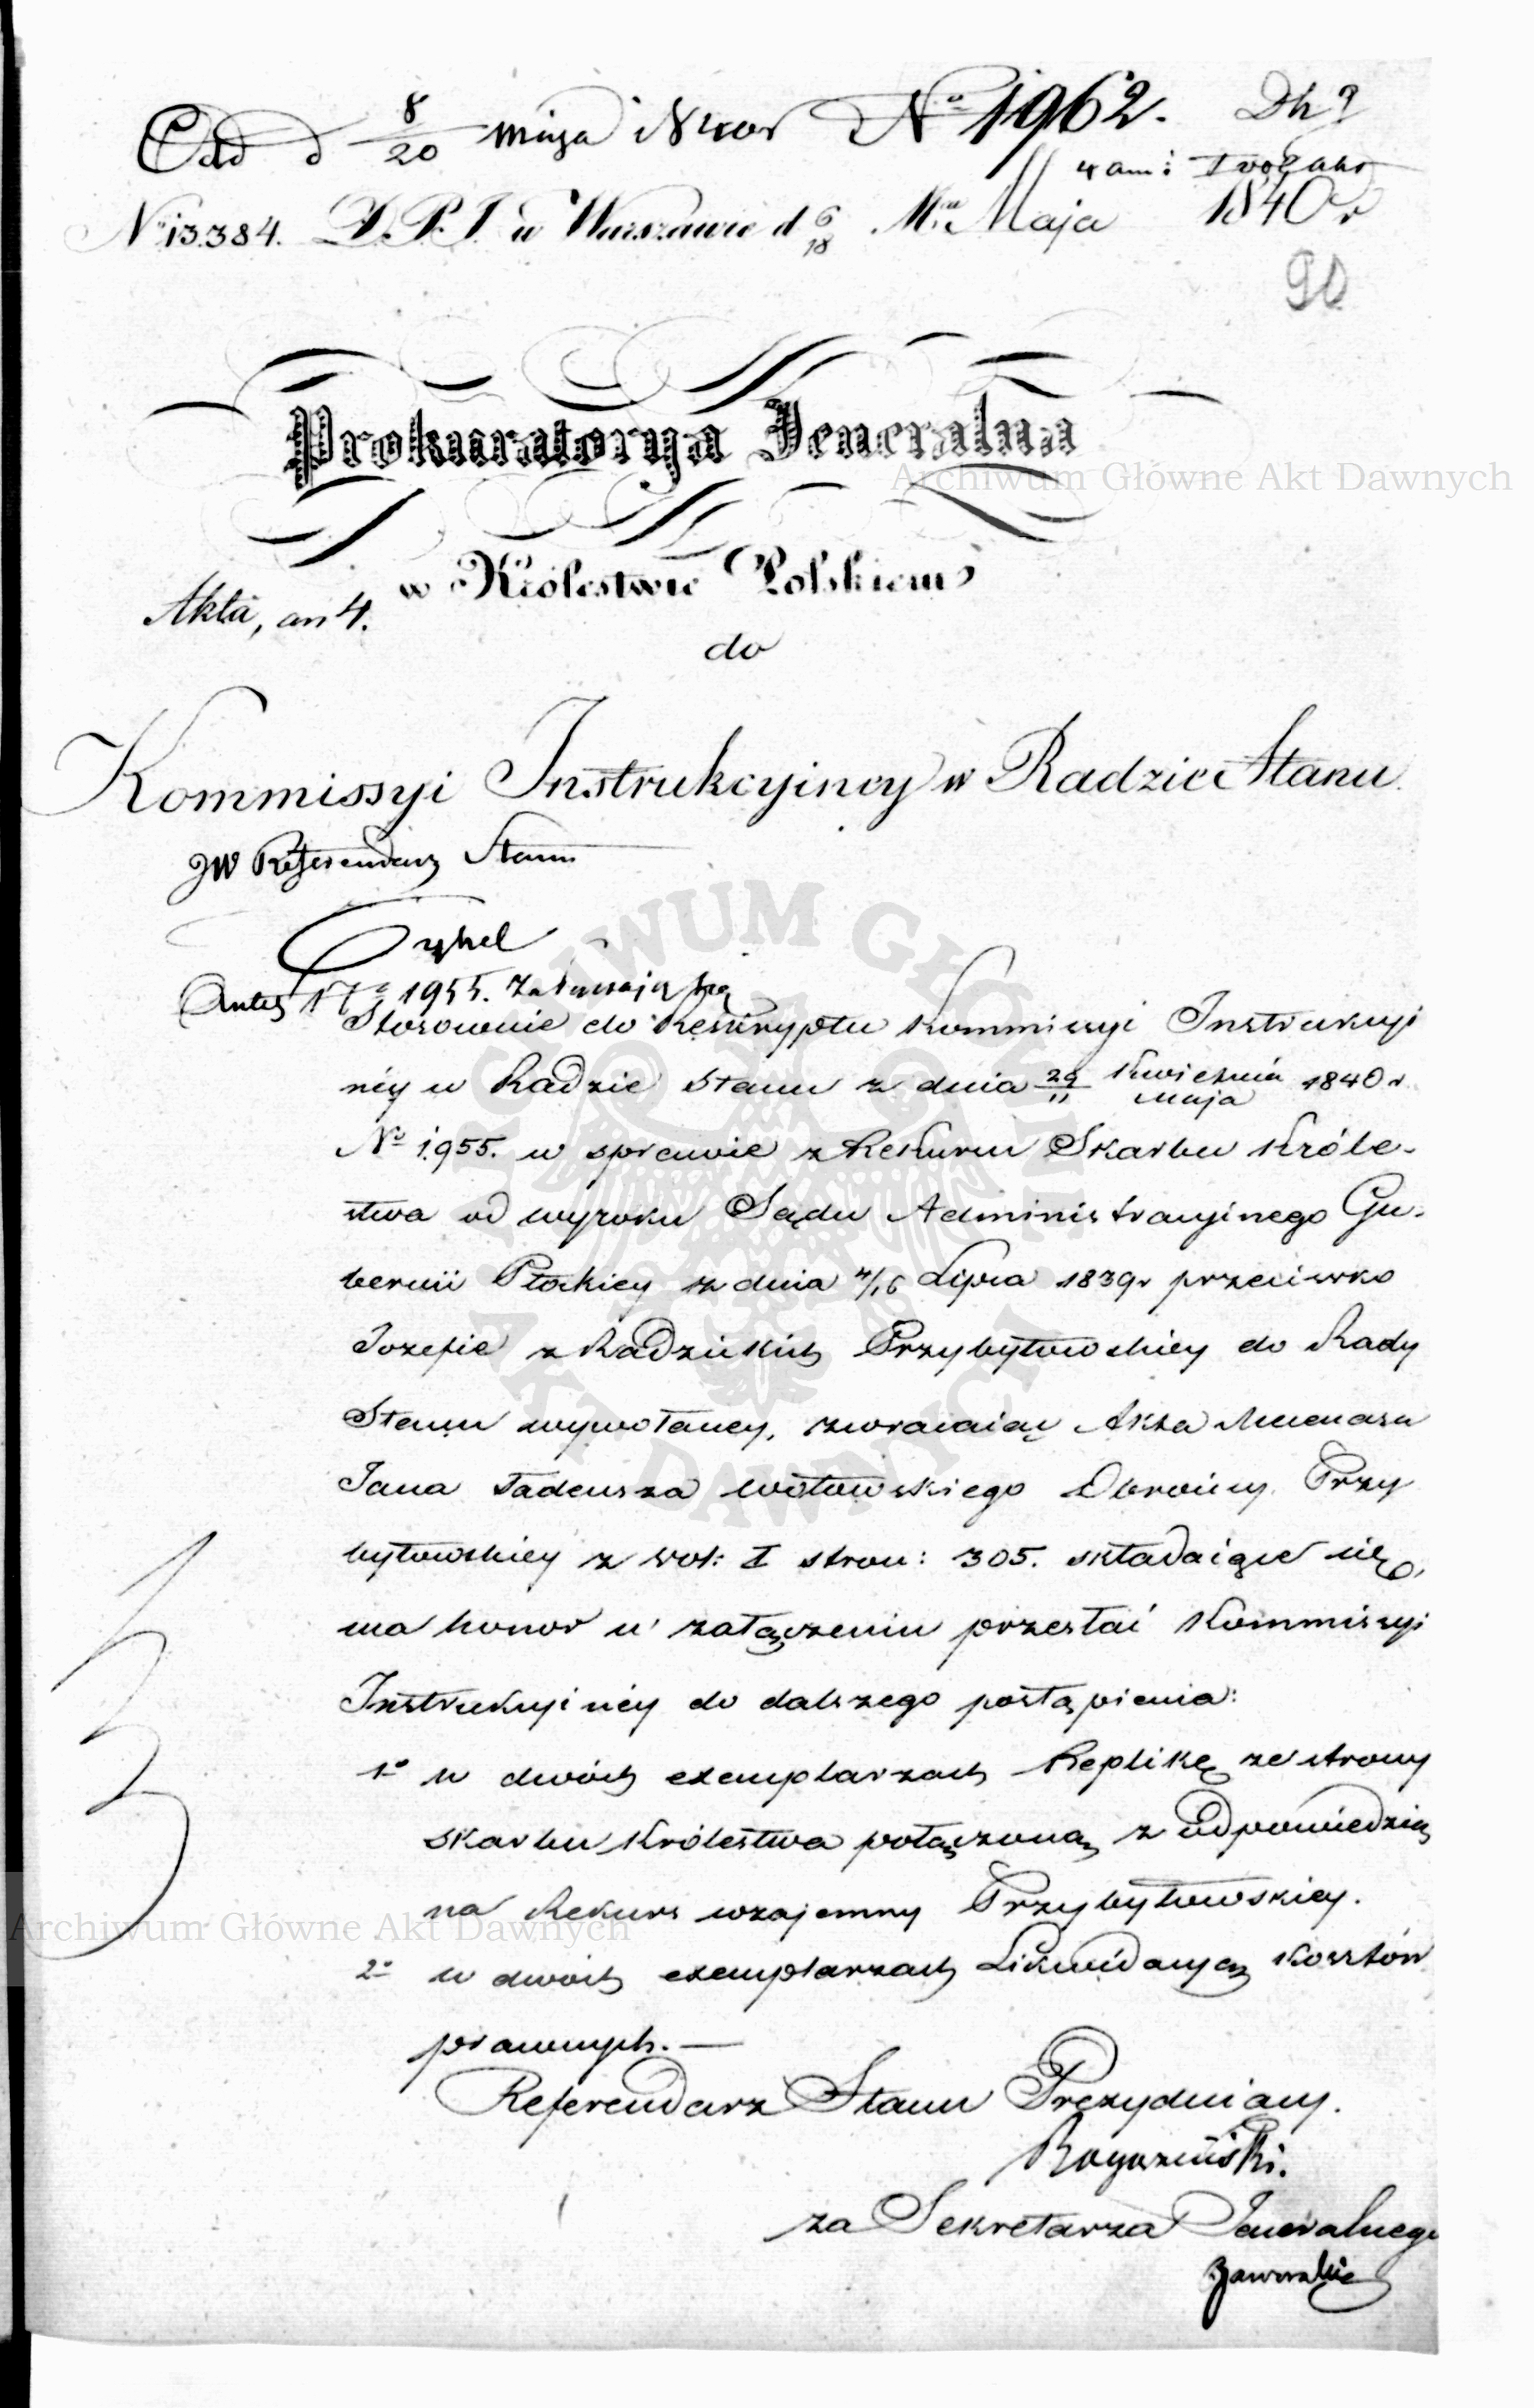 Odd d 8/20 maja 1840r № 1962.
4 an:
№ 13.384. D.P.J. w Warszawie d 6/18 M.ca Maja 1840 r
90
Prokuratorya Jeneralna
Archiwum Główne Akt Dawnych
w Królestwie Polskiem
Akta, an 4.
do
Kommissyi Instrukcyiney w Radzie Stanu.
JW Referendarz Stanu
1955.
Stosownie do Reskryptu Kommissyi Instrukcyi
ney w Radzie Stanu z dnia 29/11 Kwietnia/Maja 1840 r.
№ 1955. w sprawie z Rekursu Skarbu Króle-
stwa od wyroku Sądu Administracyinego Gu-
bernii Płockiey z dnia 4/16 Lipca 1839r przeciwko
Jozefie z Radzickich Przybyłowskiey do Rady
Stanu wywołaney, zwracaiąc Akta Mecenasa
Jana Tadeusza Wołowskiego Obrońcy Przy
byłowskiey z wol: I stron: 305. składaiące się,
ma honor w załączeniu przesłać Kommissyi
Instrukcyiney do dalszego postąpienia:
1o w dwóch exemplarzach Replikę ze strony
Skarbu Królestwa połączoną z odpowiedzią
na Rekurs wzajemny Przybyłowskiey.
Archiwum Główne Akt Dawnych
2o w dwóch exemplarzach Likwidacyą kosztów
prawnych. —
Referendarz Stanu Prezyduiący.
za Sekretarza Jeneralnego
ARCHIWUM GŁÓWNE AKT DAWNYCH